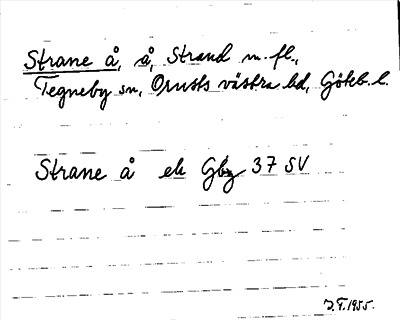 Strane å, å, Strand m.fl.,
Tegneby sn, Orusts västra hd, Göteb. l.
Strane å ek Gbg 37 SV
J.F. 1955.